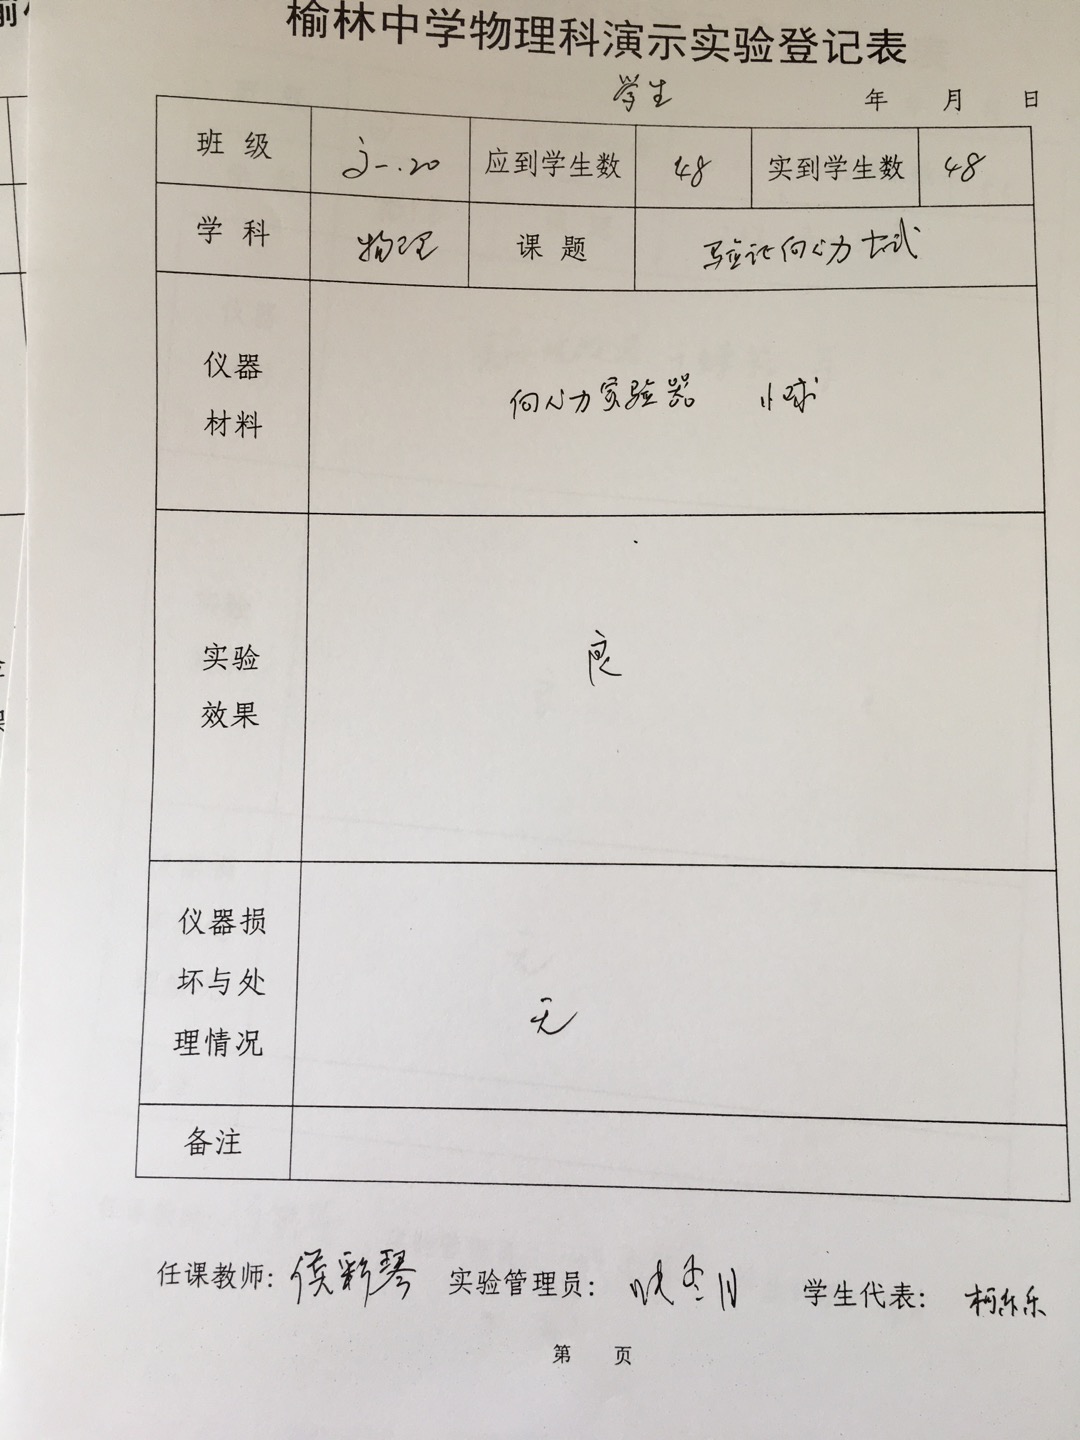 榆林中学物理科演示实验登记表
学生 年 月 日
班级 高一.20 应到学生数 48 实到学生数 48
学科 物理 课题 验证向心力公式
仪器
材料
向心力实验器 小球
实验
效果
良
仪器损
坏与处
理情况
无
备注
任课教师: 侯彩琴 实验管理员: 学生代表: 柯乐乐
第 页